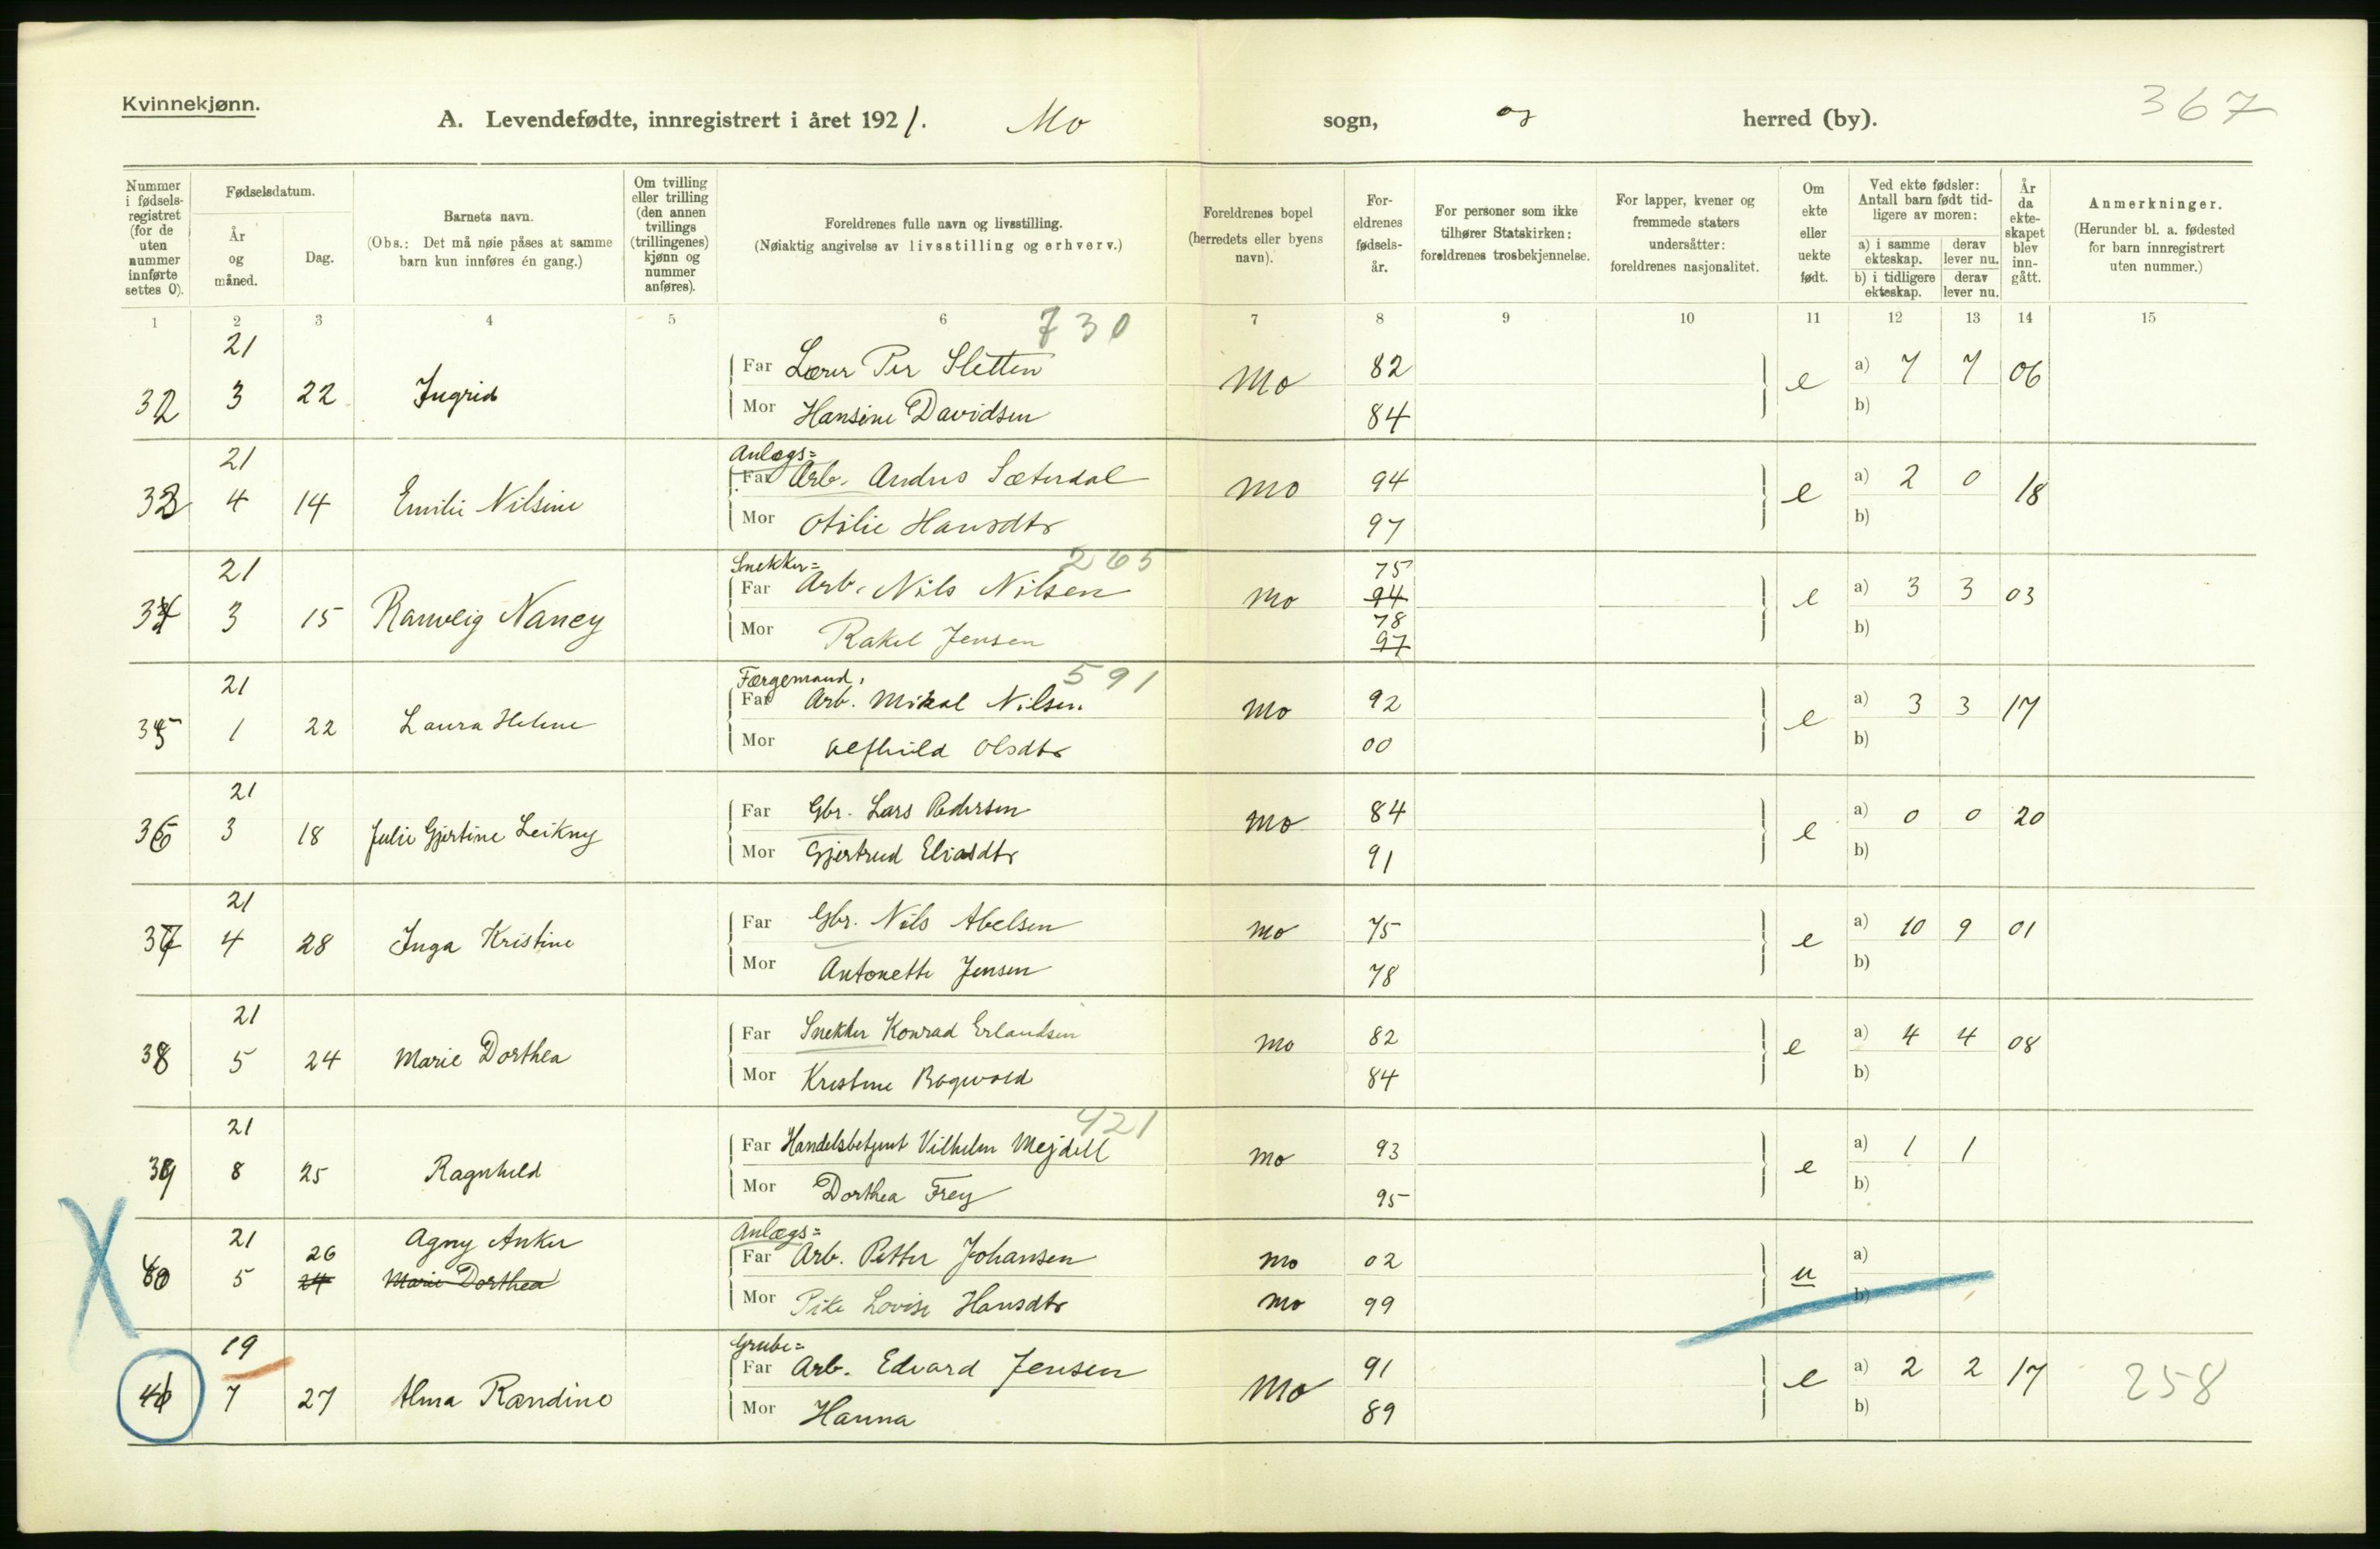 Kvinnekjønn.
367
A. Levendefødte, innregistrert i året 1921. Mo sogn, og herred (by).
Nummer i fødsels-registret (for de uten nummer innførte settes 0).
Fødselsdatum.
År og måned.
Dag.
Barnets navn.
(Obs.: Det må nøie påses at samme barn kun innføres én gang.)
Om tvilling eller trilling (den annen tvillings (trillingenes) kjønn og nummer anføres).
Foreldrenes fulle navn og livsstilling.
(Nøiaktig angivelse av livsstilling og erhverv.)
Foreldrenes bopel (herredets eller byens navn).
For-eldrenes fødsels-år.
For personer som ikke tilhører Statskirken: foreldrenes trosbekjennelse.
For lapper, kvener og fremmede staters undersåtter: foreldrenes nasjonalitet.
Om ekte eller uekte født.
Ved ekte fødsler: Antall barn født tid-ligere av moren:
a) i samme ekteskap. derav lever nu.
b) i tidligere ekteskap. derav lever nu.
År da ekte-skapet blev inn-gått.
Anmerkninger.
(Herunder bl. a. fødested for barn innregistrert uten nummer.)
1 2 3 4 5 6 7 8 9 10 11 12 13 14 15
730
21
32 3 22 Ingrid Far Lærer Per Sletten Mo 82 e a) 7 7 06
Mor Hansine Davidsen 84 b)
21 Anlægs=
33 4 14 Emilie Nilsine Far Arb. Andreas Sæterdal Mo 94 e a) 2 0 18
Mor Otilie Hansdtr 97 b)
21 Snekker= 265 75
34 3 15 Ranveig Nancy Far Arb. Nils Nilsen Mo 94 e a) 3 3 03
78
Mor Rakel Jensen 97 b)
21 Færgemand, 591
35 1 22 Laura Helene Far Arb. Mikal Nilsen Mo 92 e a) 3 3 17
Mor Alfhild Olsdtr 00 b)
21
36 3 18 Julie Gjertine Leikny Far Gbr. Lars Pedersen Mo 84 e a) 0 0 20
Mor Gjertrud Eliasdtr 91 b)
21
37 4 28 Inga Kristine Far Gbr. Nils Abelsen Mo 75 e a) 10 9 01
Mor Antonette Jensen 78 b)
21
38 5 24 Marie Dorthea Far Snekker Konrad Erlandsen Mo 82 e a) 4 4 08
Mor Kristine Bogvold 84 b)
21 421
39 8 25 Ragnhild Far Handelsbetjent Vilhelm Mejdell Mo 93 e a) 1 1
Mor Dorthea Frey 95 b)
21 26 Agny Anker Anlægs=
40 5 24 Marie Dorthea Far Arb. Petter Johansen Mo 02 u a)
Mor Pike Lovise Hansdtr Mo 99 b)
19 Grube=
41 7 27 Alma Randine Far Arb. Edvard Jensen Mo 91 e a) 2 2 17 258
Mor Hanna 89 b)